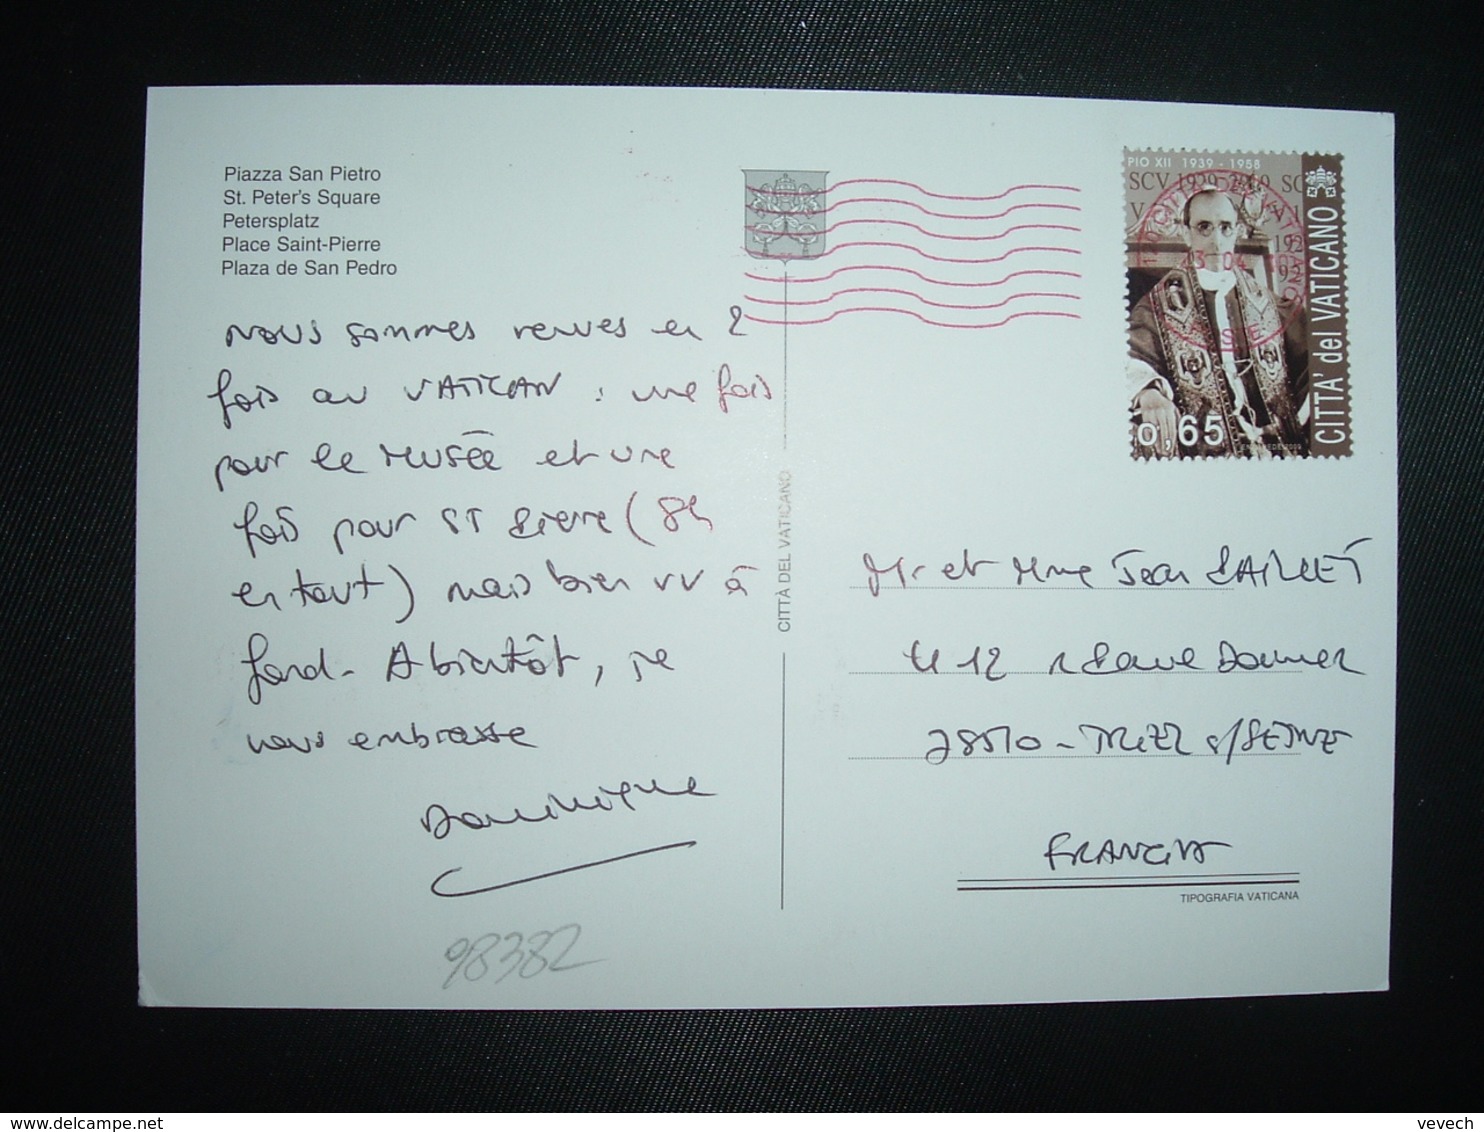 Piazza San Pietro
St. Peter's Square
Petersplatz
Place Saint-Pierre
Plaza de San Pedro
nous sommes venues en 2
fois au VATICAN : une fois
pour le musée et une
fois pour ST Pierre (8h
en tout) mais bien vv à
fond. A bientôt, je
vous embrasse
Dominique
98382
CITTÀ DEL VATICANO
PIO XII 1939 - 1958
SCV 1929-2009 SC
0,65
CITTA' del VATICANO
Mr et Mme Jean
412 r Paul Doumer
78510 - TRIEL s/SEINE
FRANCIA
TIPOGRAFIA VATICANA
vevech